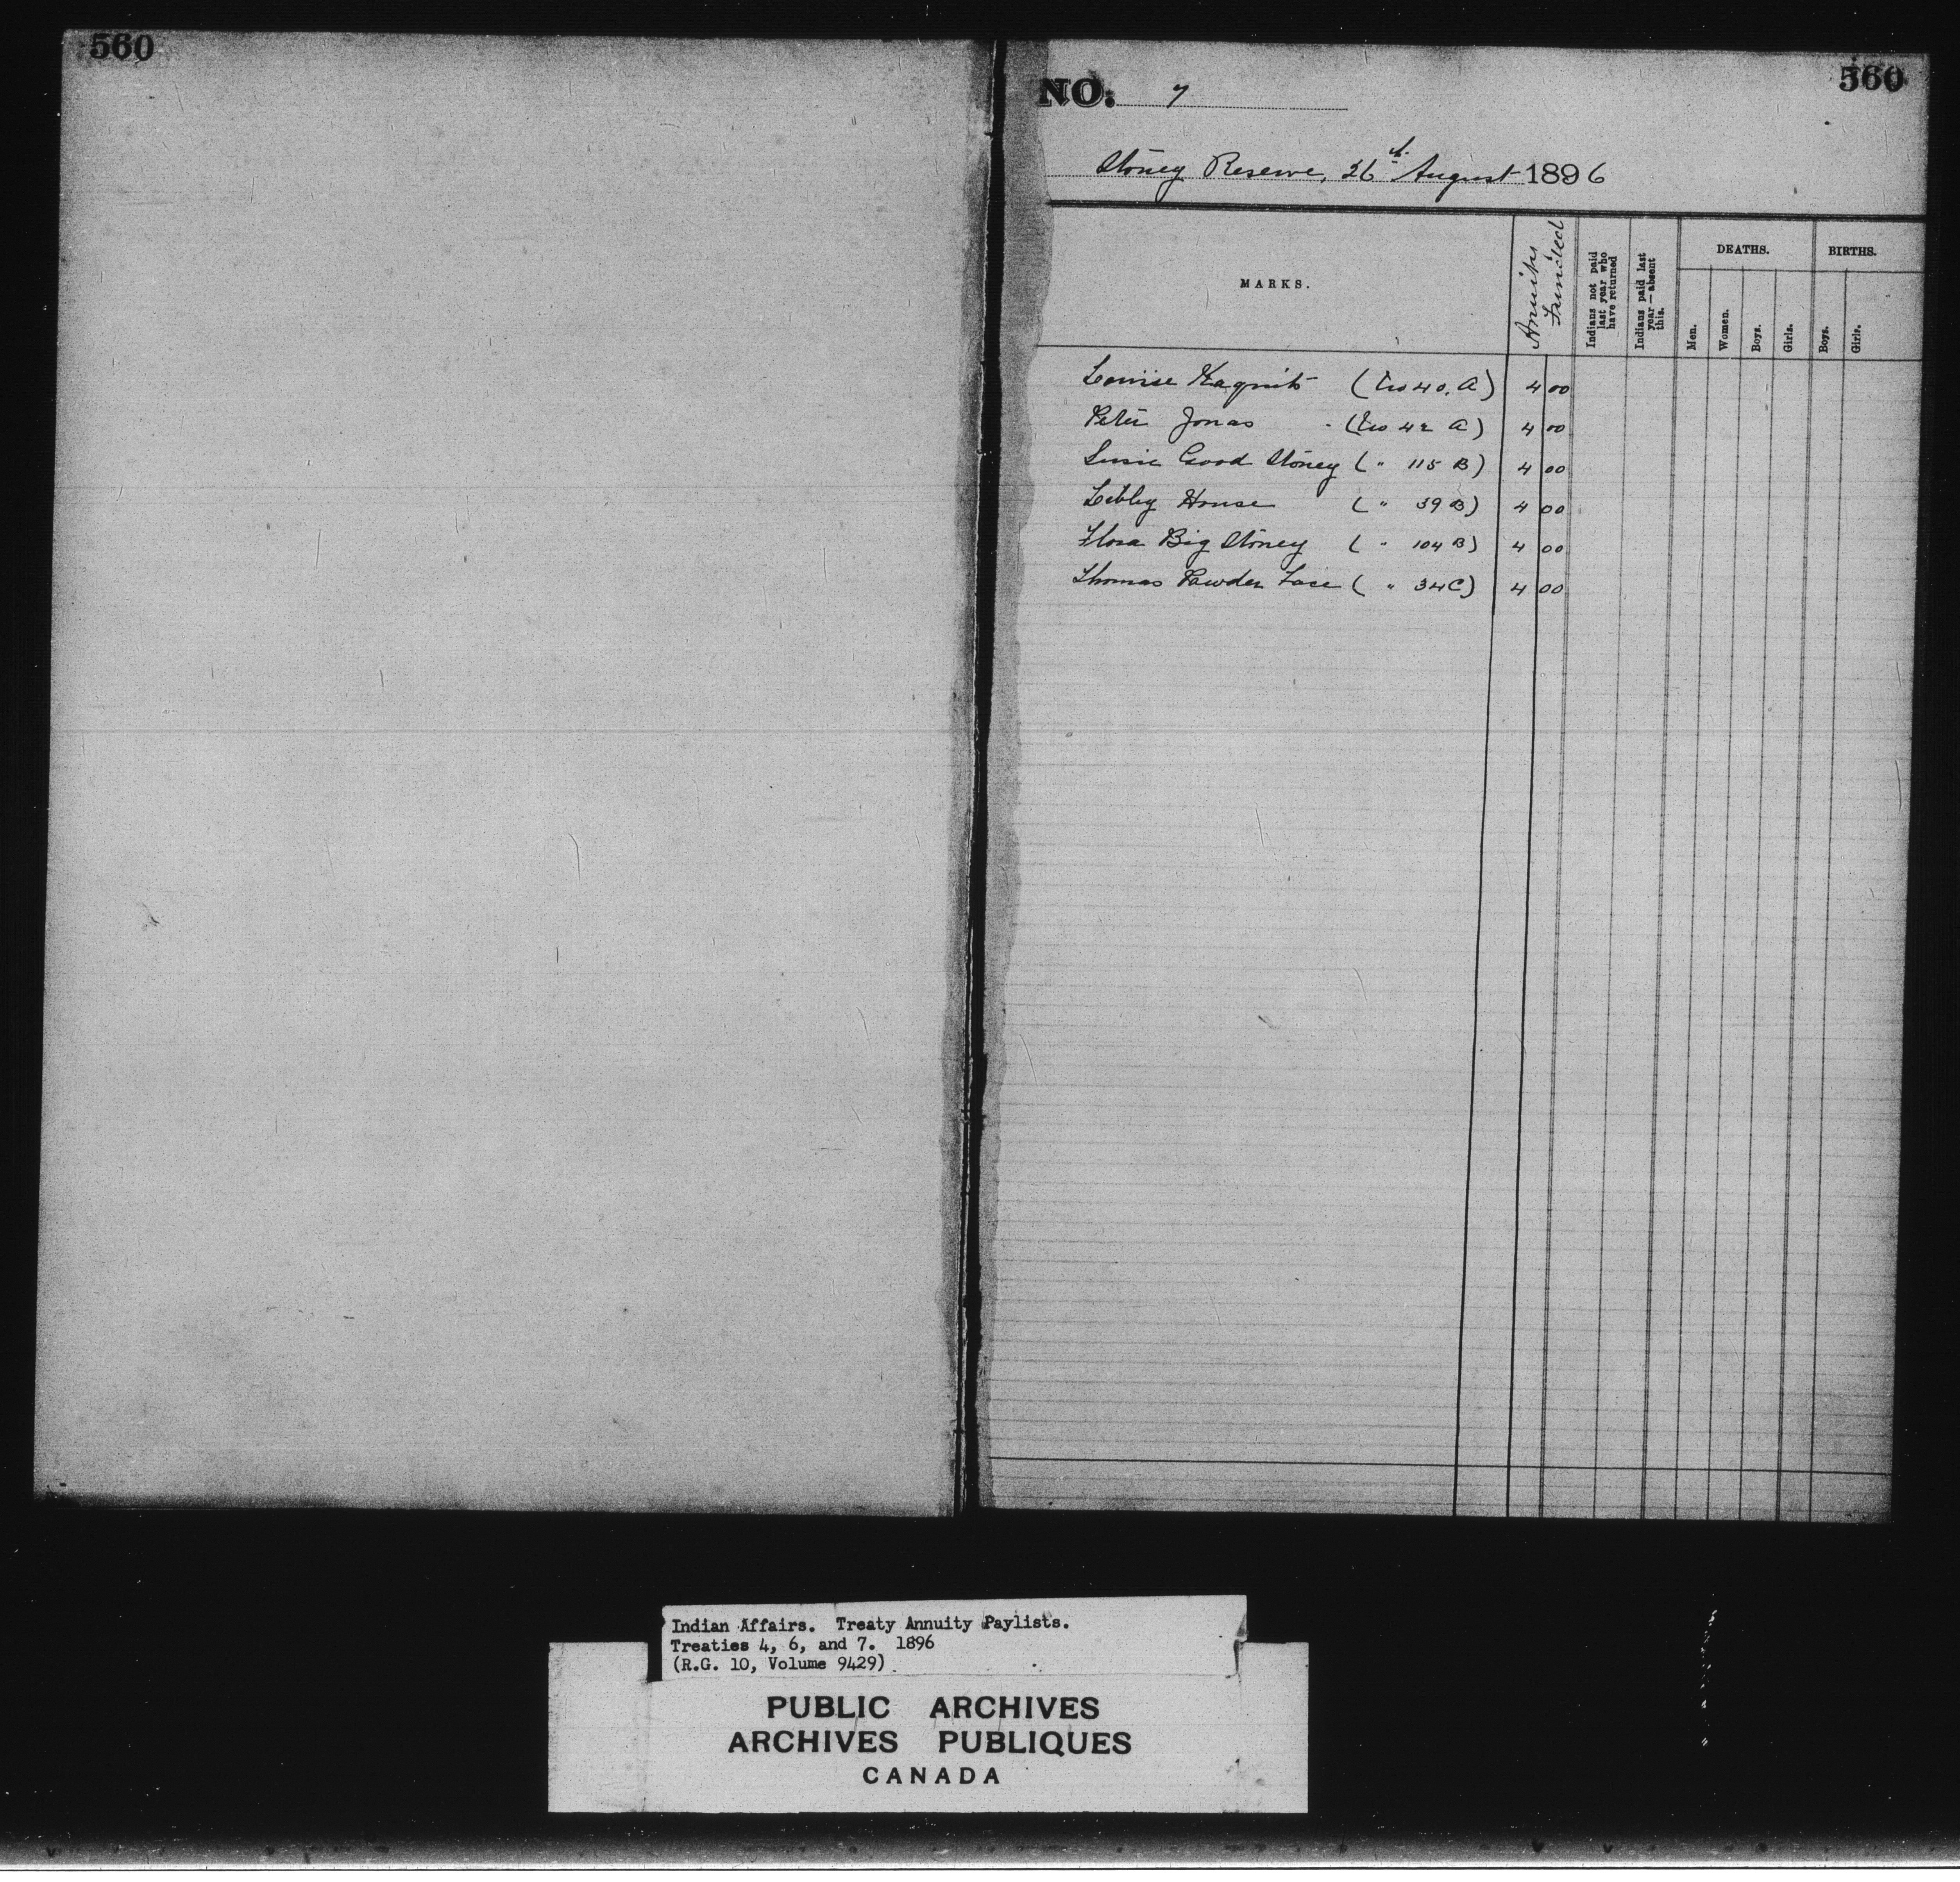 560
560
NO. 7
Stoney Reserve, 26th August 1896
MARKS.
Annuity Funded
Indians not paid last year who have returned
Indians paid last year — absent this.
DEATHS.
BIRTHS.
Men.
Women.
Boys.
Girls.
Boys.
Girls.
Louise (No 40. A) 4 00
Peter Jonas (No 42 A) 4 00
Susie Good Stoney ( " 115 B) 4 00
Libby House ( " 39 B) 4 00
Flora Big Stoney ( " 104 B) 4 00
Thomas Powder Face ( " 34 C) 4 00
Indian Affairs. Treaty Annuity Paylists.
Treaties 4, 6, and 7. 1896
(R.G. 10, Volume 9429)
PUBLIC ARCHIVES
ARCHIVES PUBLIQUES
CANADA